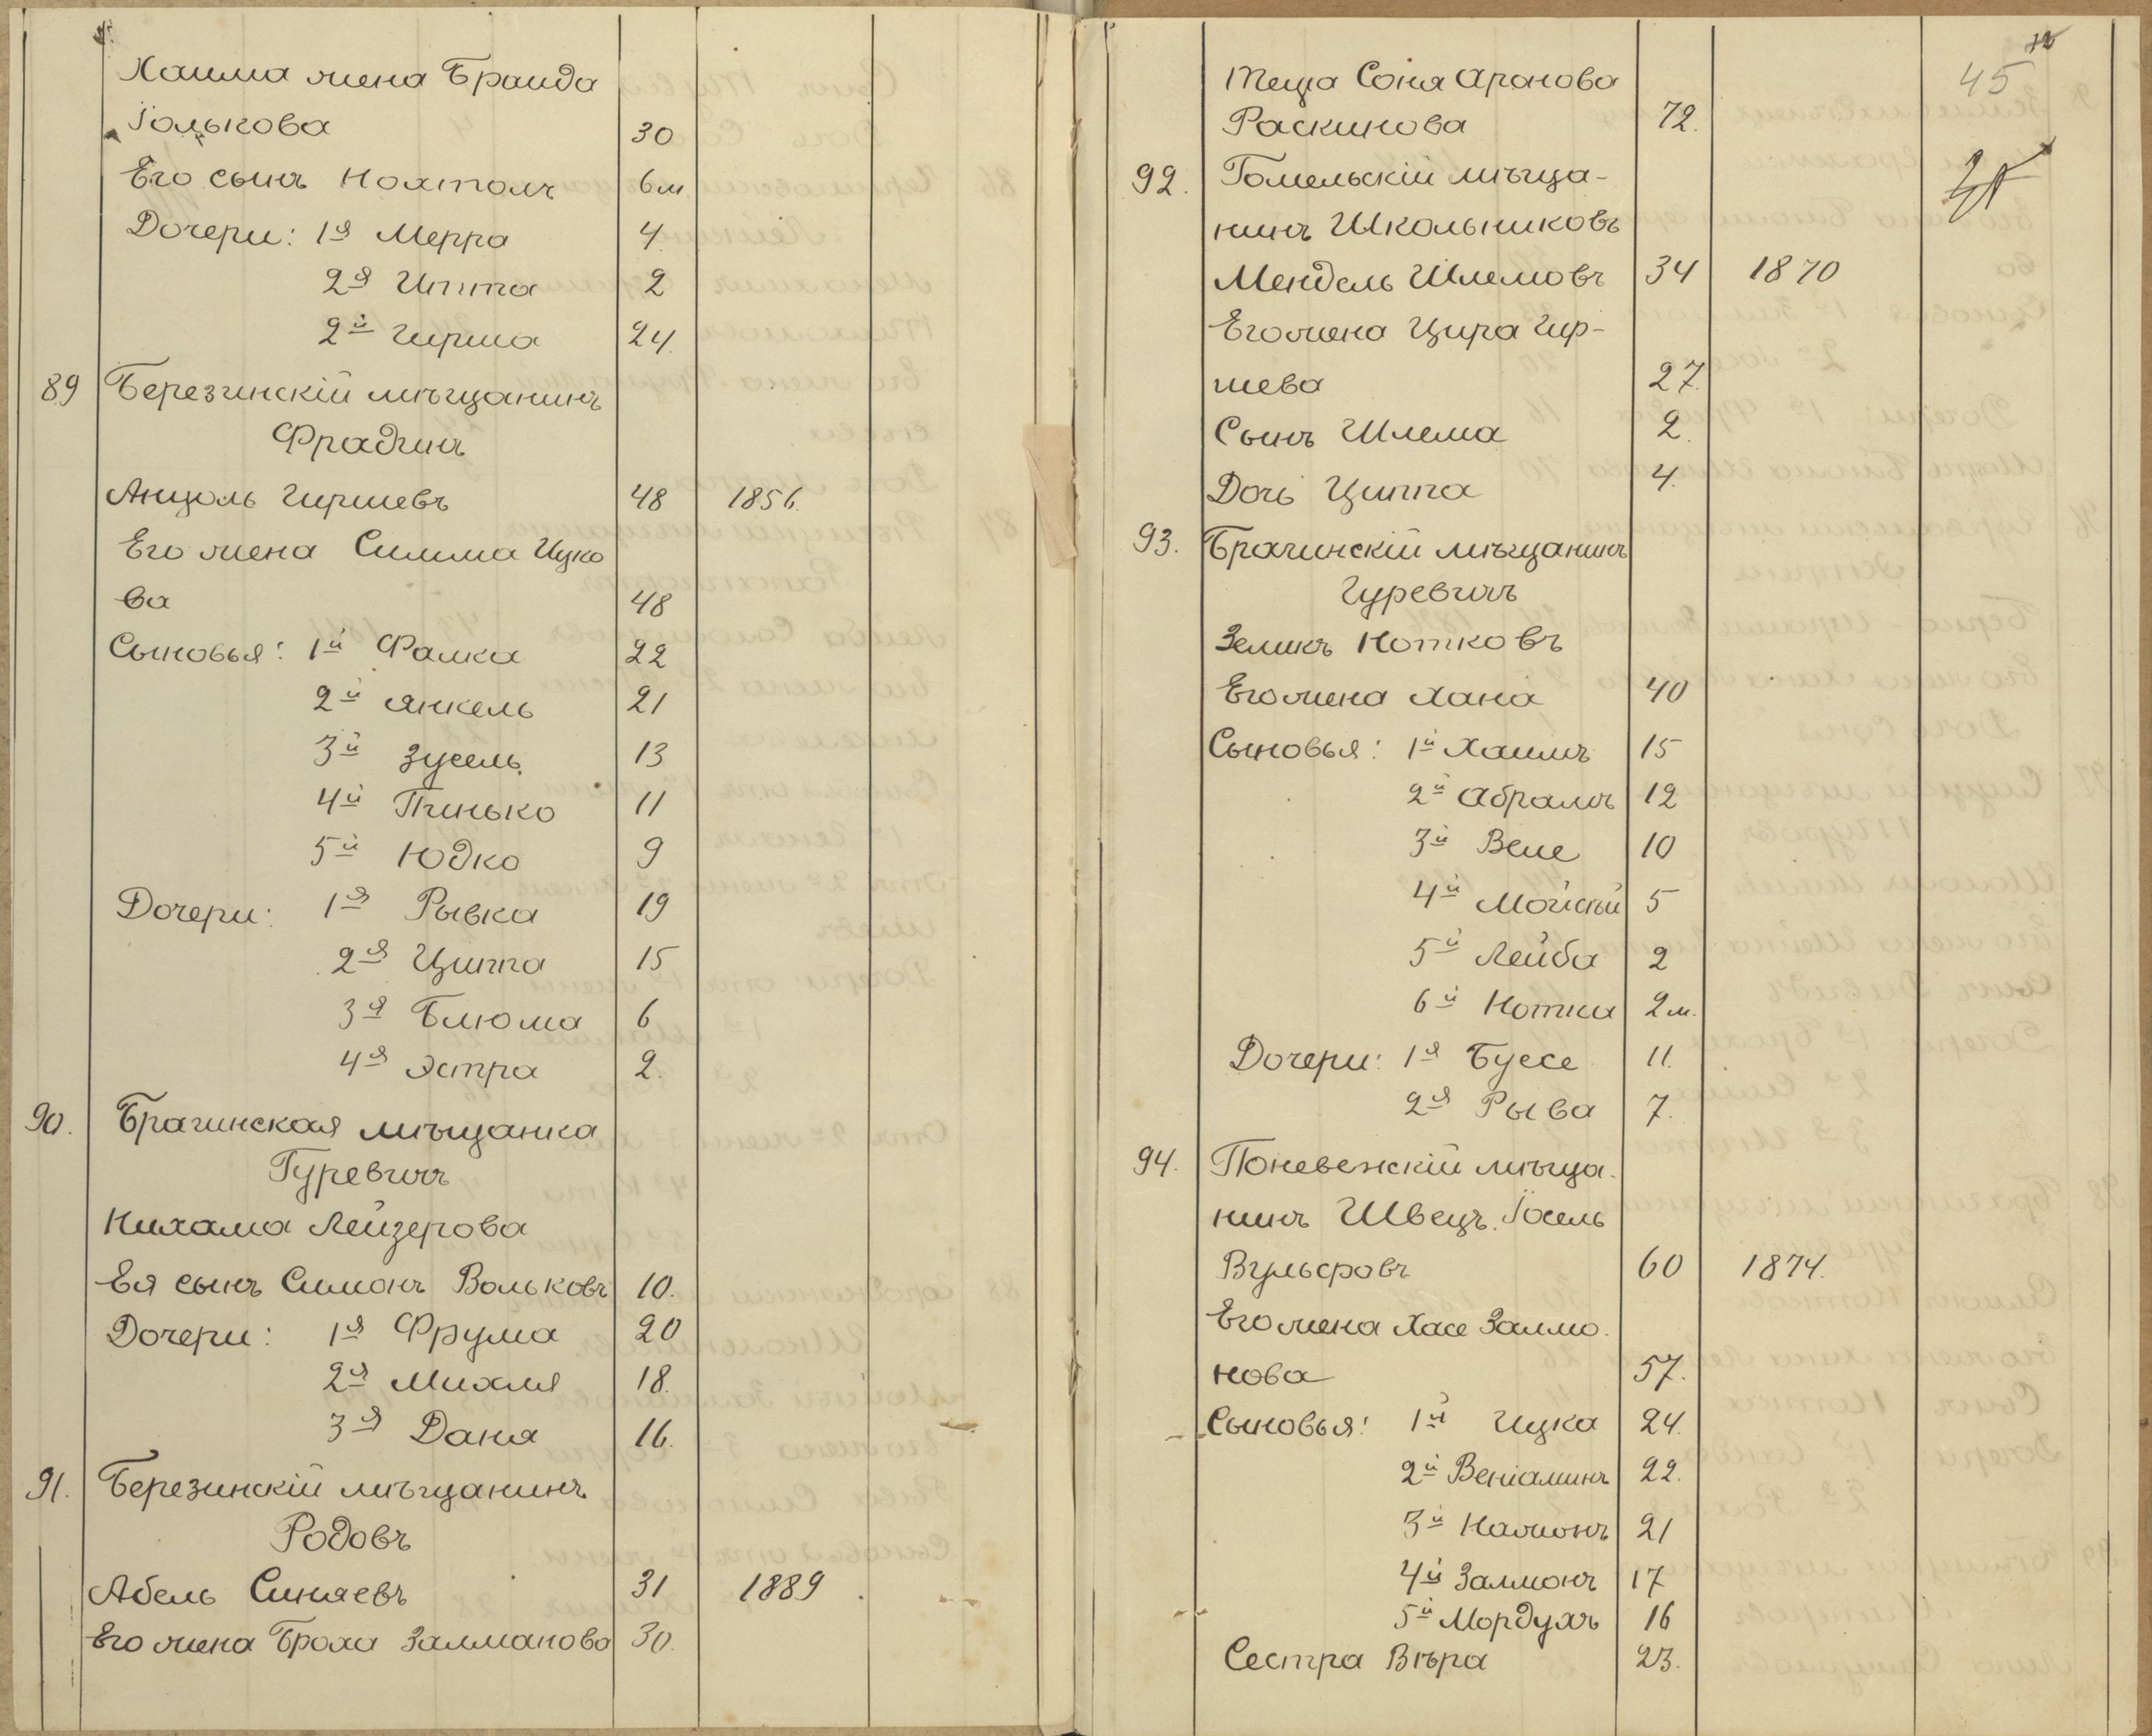 Хаима жена Браида
Іолькова 30
Его сынъ Нохтомъ 6 м.
Дочери: 1я Мерра 4.
2я Иппа 2
2й Гирша 24.
89 Березинскій мѣщанинъ
Фрадинъ
Анцель Гиршевъ 48 1856.
Его жена Симма Ицко
ва 48
Сыновья: 1й Фалка 22
2й Янкель 21
3й Зусель 13
4й Пинько 11
5й Юдко 9
Дочери: 1я Рывка 19
2я Циппа 15
3я Блюма 6
4я Эстра 2.
90. Брагинская мѣщанка
Гуревичъ
Нихама Лейзерова
Ея сынъ Симонъ Вольковъ 10.
Дочери: 1я Фрума 20
2я Михля 18.
3я Даня 16.
91. Березинскій мѣщанинъ
Родовъ
Абель Синяевъ 31 1889
Его жена Броха Залманова 30.
45
Теща Соня Аронова
Раскинова 72.
92. Гомельскій мѣща-
нинъ Школьниковъ
Мендель Шлемовъ 34 1870
Его жена Цира Гир-
шева 27.
Сынъ Шлема 2.
Дочь Циппа 4.
93. Брагинскій мѣщанинъ
Гуревичъ
Зеликъ Нотковъ
Его жена Хана 40
Сыновья: 1й Хаимъ 15
2й Абрамъ 12
3й Веле 10
4й Мойсей 5
5й Лейба 2
6й Нотки 2 м.
Дочери: 1я Буесе 11.
2я Рыва 7.
94. Поневежскій мѣща.
нинъ Швецъ. Іосель
Вульфровъ 60 1874.
Его жена Хасе Залмо.
нова 57.
Сыновья: 1й Ицка 24.
2й Веніаминъ 22.
3й Налионъ 21
4й Залмонъ 17
5й Мордухъ 16
Сестра Вѣра 23.